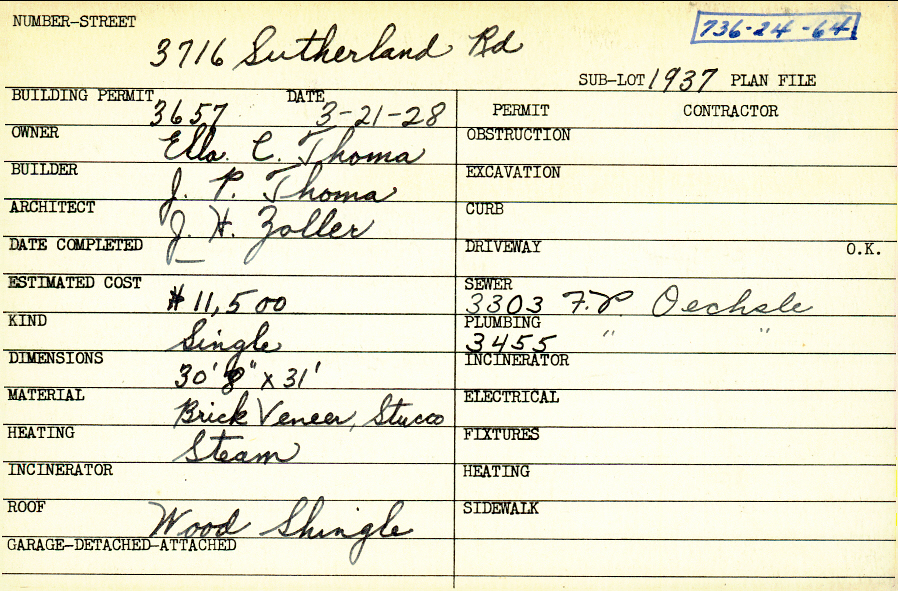 NUMBER-STREET
736-24-64
3716 Sutherland Rd
SUB-LOT 1937 PLAN FILE
BUILDING PERMIT 3657 DATE 3-21-28
OWNER Ella C. Thoma
BUILDER J. P. Thoma
ARCHITECT J. H. Zoller
DATE COMPLETED —
ESTIMATED COST $11,500
KIND Single
DIMENSIONS 30' 8" x 31'
MATERIAL Brick Veneer, Stucco
HEATING Steam
INCINERATOR
ROOF Wood Shingle
GARAGE-DETACHED-ATTACHED
PERMIT CONTRACTOR
OBSTRUCTION
EXCAVATION
CURB
DRIVEWAY O.K.
SEWER
3303 F.P. Oechsle
PLUMBING
3455 " "
INCINERATOR
ELECTRICAL
FIXTURES
HEATING
SIDEWALK